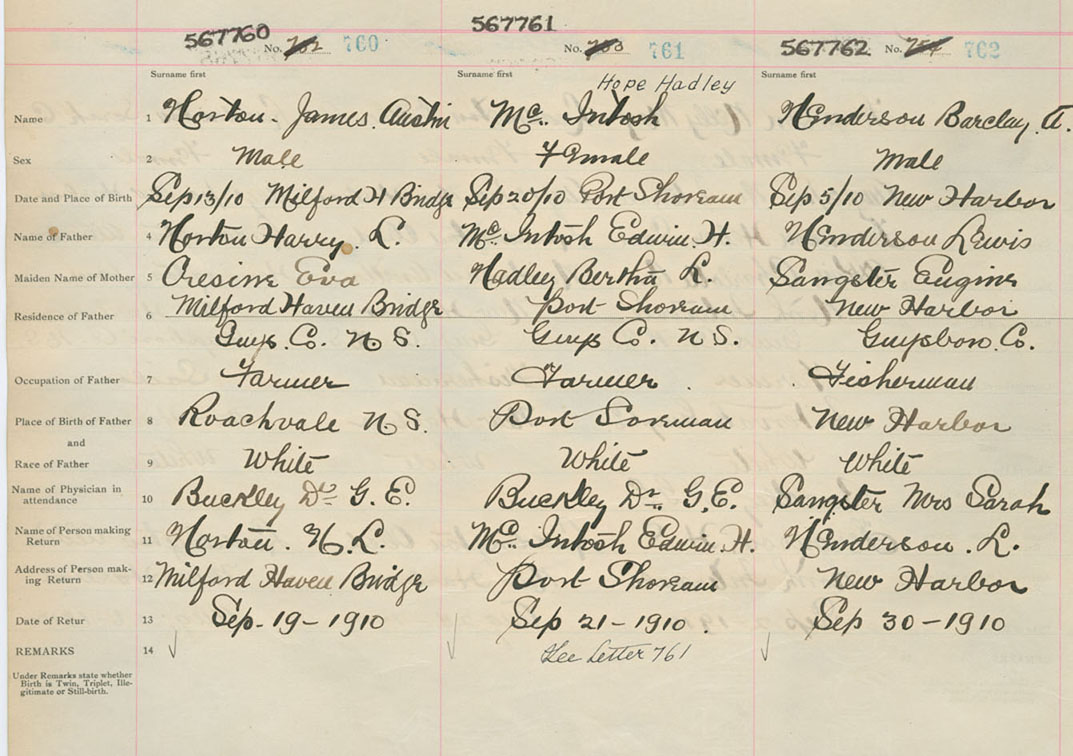 567760 No. 760 567761 No. 761 567762 No. 762
Surname first Surname first Surname first
Hope Hadley
Name 1 Horton. James. Austin Mc. Intosh Henderson Barclay. A.
Sex 2 Male Female Male
Date and Place of Birth Sep 13/10 Milford H Bridge Sep 20/10 Port Shoream Sep 5/10 New Harbor
Name of Father 4 Horton Harry. L. Mc. Intosh Edwin. H. Henderson Lewis
Maiden Name of Mother 5 Eva Hadley Bertha L. Sangster Eugine
Milford Haven Bridge Port Shoream New Harbor
Residence of Father 6
Guys. Co. N S. Guys Co. N S. Guysboro. Co.
Occupation of Father 7 Farmer Farmer. Fisherman
Place of Birth of Father 8 Roachvale N S. Port Soreman New Harbor
and
Race of Father 9 White White White
Name of Physician in
attendance 10 Buckley Dr G. E. Buckley Dr. G. E. Sangster Mrs Sarah
Name of Person making
Return 11 Horton. H. L. Mc. Intosh Edwin. H. Henderson. L.
Address of Person mak-
ing Return 12 Milford Haven Bridge Port Shoream New Harbor
Date of Retur 13 Sep. 19-1910 Sep 21-1910. Sep 30-1910
REMARKS 14 See Letter 761
Under Remarks state whether
Birth is Twin, Triplet, Ille-
gitimate or Still-birth.